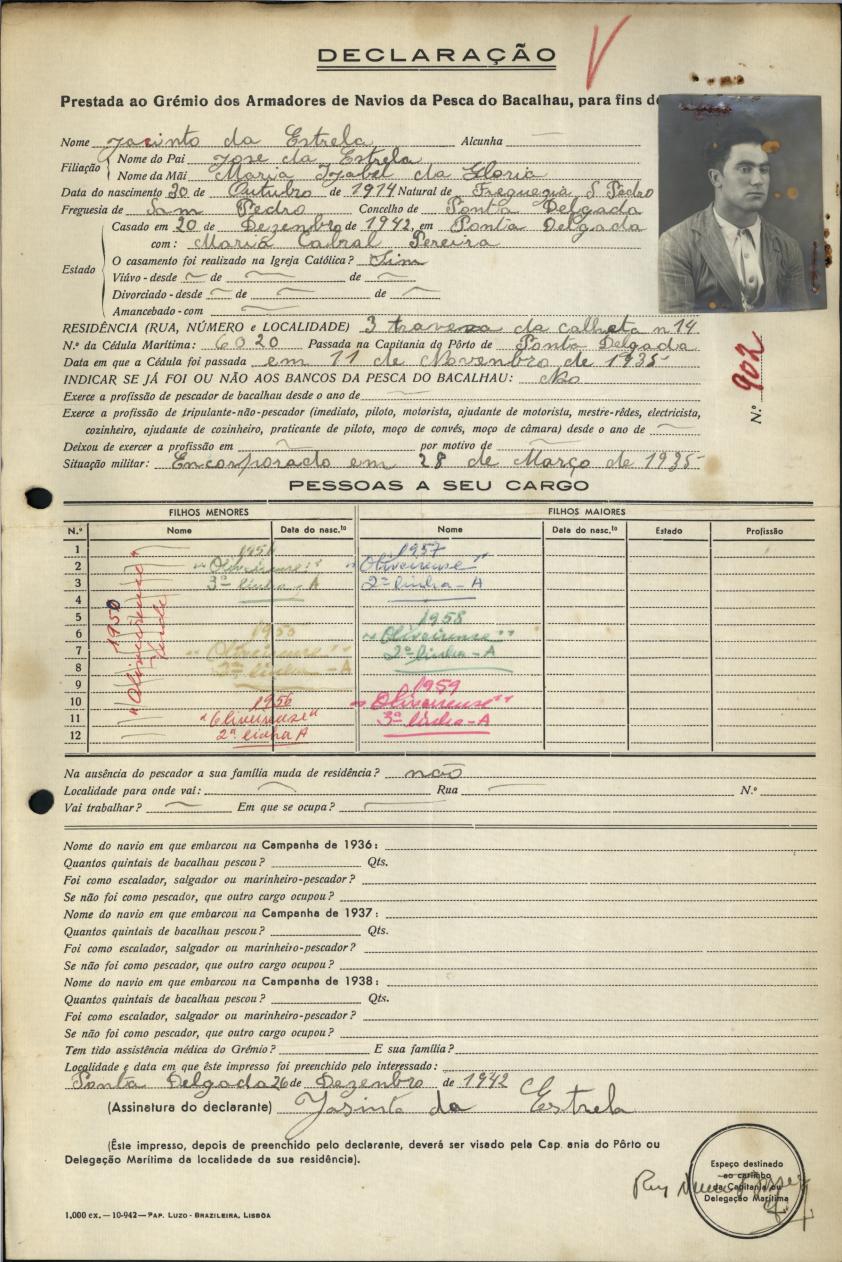 DECLARAÇÃO
V
Prestada ao Grémio dos Armadores de Navios da Pesca do Bacalhau, para fins de
Nome Jacinto da Estrela Alcunha
Filiação
Nome do Pai Jose da Estrela
Nome da Mãi Maria Izabel da Gloria
Data do nascimento 30 de Outubro de 1914 Natural de Freguezia S. Pedro
Freguesia de Sam Pedro Concelho de Ponta Delgada
Estado
Casado em 20 de Dezembro de 1942, em Ponta Delgada
com: Maria Cabral Pereira
O casamento foi realizado na Igreja Católica? Sim
Viúvo - desde de de
Divorciado - desde de de
Amancebado - com
RESIDÊNCIA (RUA, NÚMERO e LOCALIDADE) 3 travessa da calheta n 14
N.º da Cédula Marítima: 6020 Passada na Capitania do Pôrto de Ponta Delgada
Data em que a Cédula foi passada em 11 de Novenbro de 1935
INDICAR SE JÁ FOI OU NÃO AOS BANCOS DA PESCA DO BACALHAU: Não
N.º 902
Exerce a profissão de pescador de bacalhau desde o ano de
Exerce a profissão de tripulante-não-pescador (imediato, piloto, motorista, ajudante de motorista, mestre-rêdes, electricista,
cozinheiro, ajudante de cozinheiro, praticante de piloto, moço de convés, moço de câmara) desde o ano de
Deixou de exercer a profissão em por motivo de
Situação militar: Encorporado em 28 de Março de 1935
PESSOAS A SEU CARGO
FILHOS MENORES FILHOS MAIORES
N.º Nome Data do nasc.to Nome Data do nasc.to Estado Profissão
1 1957
2 "Oliveirense" "Oliveirense"
3 3ª linha - A 2ª linha - A
4
5 1950 1958
6 "Oliveirense" "Oliveirense"
7 "Oliveirense" 2ª linha - A
8 linha - A
9 1959
10 1956 "Oliveirense"
11 "Oliveirense" 3ª linha - A
12 2ª linha A
Na ausência do pescador a sua família muda de residência? não
Localidade para onde vai: Rua N.º
Vai trabalhar? Em que se ocupa?
Nome do navio em que embarcou na Campanha de 1936:
Quantos quintais de bacalhau pescou? Qts.
Foi como escalador, salgador ou marinheiro-pescador?
Se não foi como pescador, que outro cargo ocupou?
Nome do navio em que embarcou na Campanha de 1937:
Quantos quintais de bacalhau pescou? Qts.
Foi como escalador, salgador ou marinheiro-pescador?
Se não foi como pescador, que outro cargo ocupou?
Nome do navio em que embarcou na Campanha de 1938:
Quantos quintais de bacalhau pescou? Qts.
Foi como escalador, salgador ou marinheiro-pescador?
Se não foi como pescador, que outro cargo ocupou?
Tem tido assistência médica do Grémio? E sua família?
Localidade e data em que êste impresso foi preenchido pelo interessado:
Ponta Delgada 26 de Dezenbro de 1942
(Assinatura do declarante) Jasinto da Estrela
(Êste impresso, depois de preenchido pelo declarante, deverá ser visado pela Cap. ania do Pôrto ou
Delegação Marítima da localidade da sua residência).
Espaço destinado
ao carimbo
da Capitania ou
Delegação Marítima
Ruy
1,000 ex. — 10-942 — PAP. LUZO-BRAZILEIRA, LISBÔA